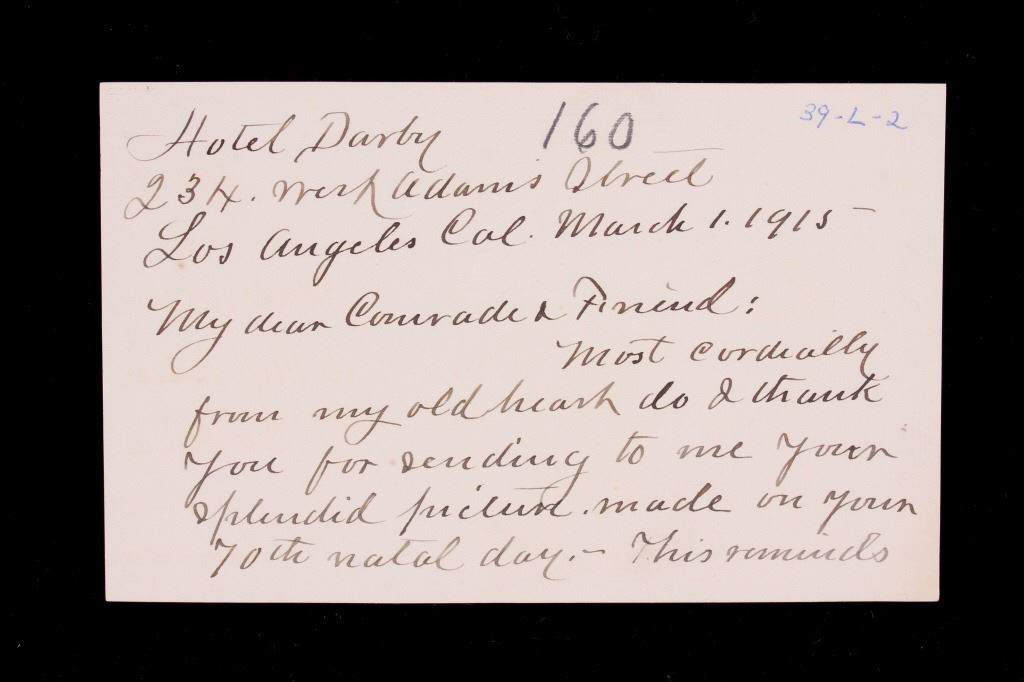 Hotel Darby 160 39-L-2
234. West Adams Street
Los Angeles Cal. March 1. 1915 -
My dear Comrade & Friend:
Most cordially
from my old heart do I thank
you for sending to me your
splendid picture. made on your
70th natal day. - This reminds